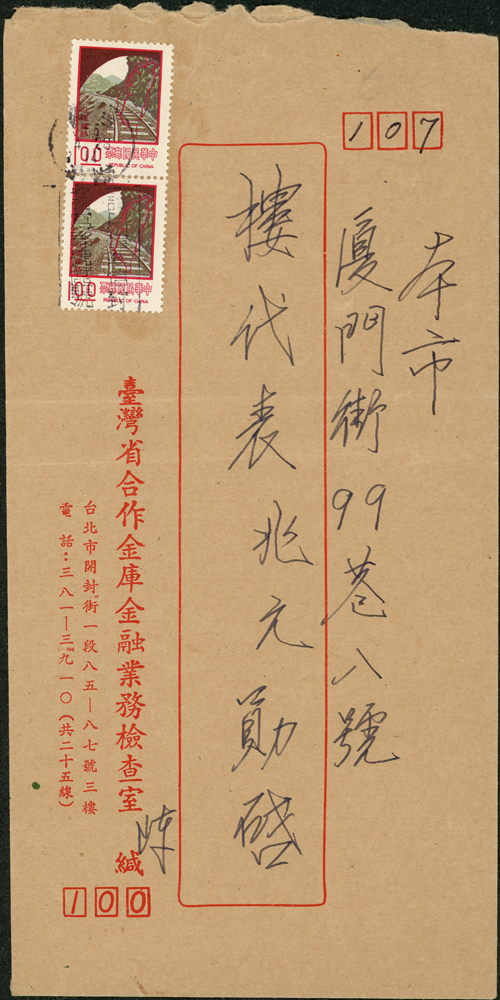 107
本市
厦門街99巷八號
樓代表兆元勛啓
臺灣省合作金庫金融業務檢查室 緘
陳
台北市開封街一段八五—八七號三樓
電話：三八一—三九一〇（共二十五線）
100
中華民國郵票
REPUBLIC OF CHINA
1.00
中華民國郵票
REPUBLIC OF CHINA
1.00